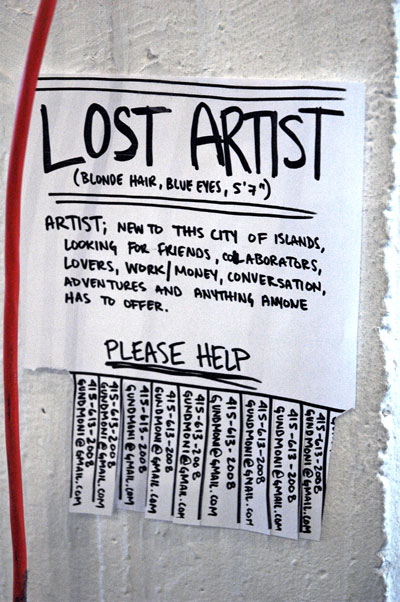 LOST ARTIST
(BLONDE HAIR, BLUE EYES, 5'7")
ARTIST; NEW TO THIS CITY OF ISLANDS,
LOOKING FOR FRIENDS, COLLABORATORS,
LOVERS, WORK/MONEY, CONVERSATION,
ADVENTURES AND ANYTHING ANYONE
HAS TO OFFER.
PLEASE HELP
415-613-2008
GUNDMONI@GMAIL.COM
415-613-2008
GUNDMONI@GMAIL.COM
415-613-2008
GUNDMONI@GMAIL.COM
415-613-2008
GUNDMONI@GMAIL.COM
415-613-2008
GUNDMONI@GMAIL.COM
415-613-2008
GUNDMONI@GMAIL.COM
415-613-2008
GUNDMONI@GMAIL.COM
415-613-2008
GUNDMONI@GMAIL.COM
415-613-2008
GUNDMONI@GMAIL.COM